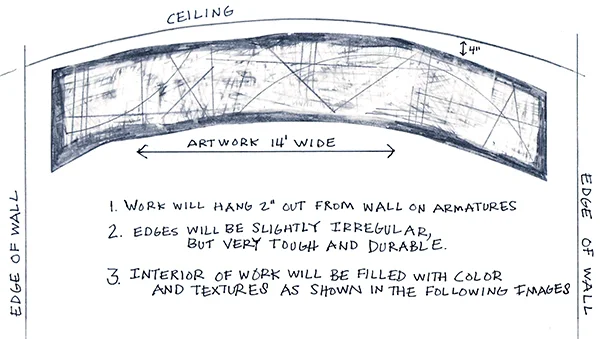 CEILING
4"
ARTWORK 14' WIDE
EDGE OF WALL
EDGE OF WALL
1. WORK WILL HANG 2" OUT FROM WALL ON ARMATURES
2. EDGES WILL BE SLIGHTLY IRREGULAR,
BUT VERY TOUGH AND DURABLE.
3. INTERIOR OF WORK WILL BE FILLED WITH COLOR
AND TEXTURES AS SHOWN IN THE FOLLOWING IMAGES